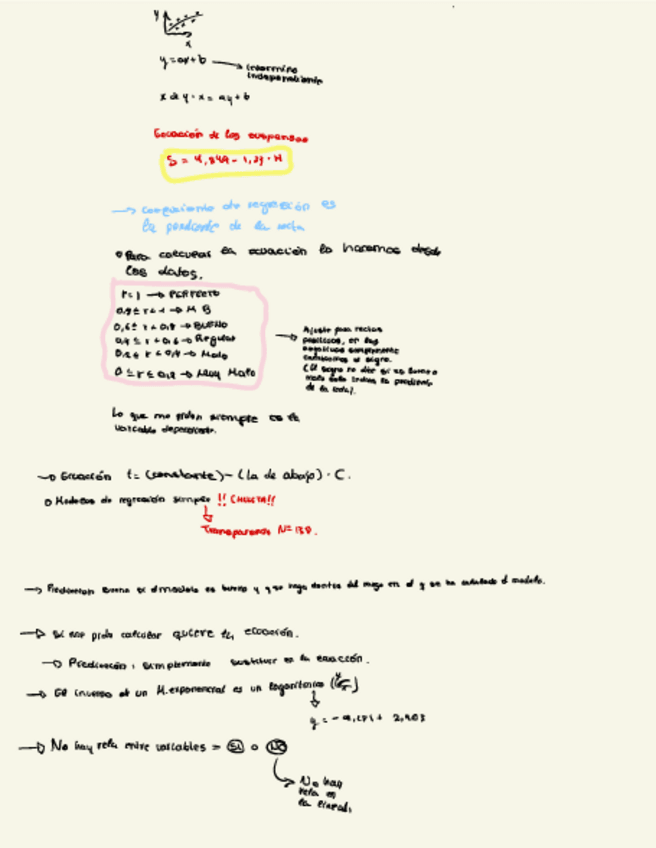 y
x
y = ax + b → termino
independiente
x de y - x = ay + b
Ecuación de los suspensos
S = 4,849 - 1,23 · H
→ coeficiente de regresión es
la pendiente de la recta
Para calcular la ecuación lo hacemos desde
los datos.
r = 1 → PERFECTO
0,8 ≤ r < 1 → M B
0,6 ≤ r < 0,8 → BUENO
0,4 ≤ r < 0,6 → Regular
0,2 ≤ r < 0,4 → Malo
0 ≤ r ≤ 0,2 → Muy Malo
→ Ajuste para rectas
positivas, en las
negativas simplemente
cambiamos el signo.
(El signo no dice si es bueno o
malo solo indica la pendiente
de la recta).
Lo que me piden siempre es la
variable dependiente.
→ Ecuación t = (constante) - (la de abajo) · C.
Modelos de regresión siempre !! CHULETA !!
Transparencia N = 130.
→ Prediccion buena si el modelo es bueno y que haga dentro del rango en el q se ha calculado el modelo.
→ Si me pide calcular quiere la ecuación.
→ Predicción: simplemente sustituir en la ecuación.
→ El inverso de un M. exponencial es un logaritmico
→ No hay rela entre variables = SI o NO
No hay
rela en
la lineal.